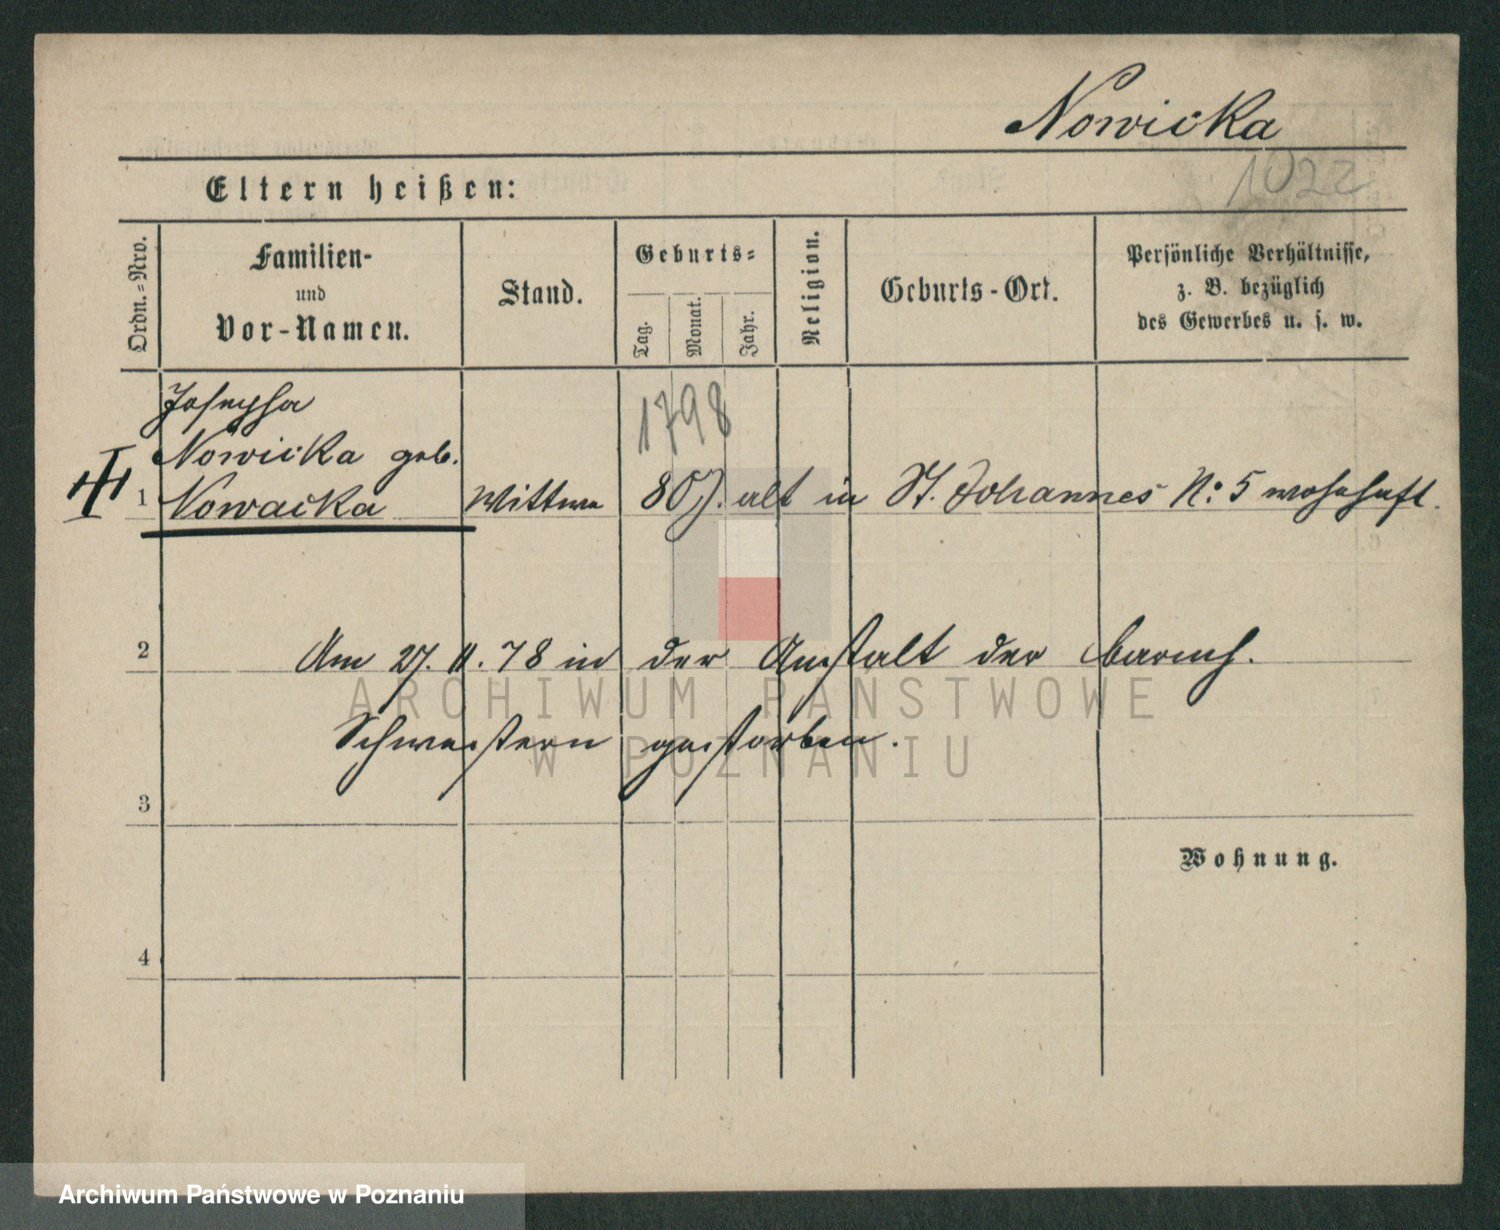 Nowicka
1022
Eltern heißen:
Ordn.-Nro.
Familien-
und
Vor-Namen.
Stand.
Geburts-
Tag.
Monat.
Jahr.
Religion.
Geburts-Ort.
Persönliche Verhältnisse,
z. B. bezüglich
des Gewerbes u. s. w.
Josepha
Nowicka geb.
1 Nowacka Wittwe 80 J. alt in St. Johannes N: 5 wohnhaft.
1798
2 Am 27. 11. 78 in der Anstalt der barmh.
Schwestern gestorben.
3
Wohnung.
4
ARCHIWUM PAŃSTWOWE
W POZNANIU
Archiwum Państwowe w Poznaniu